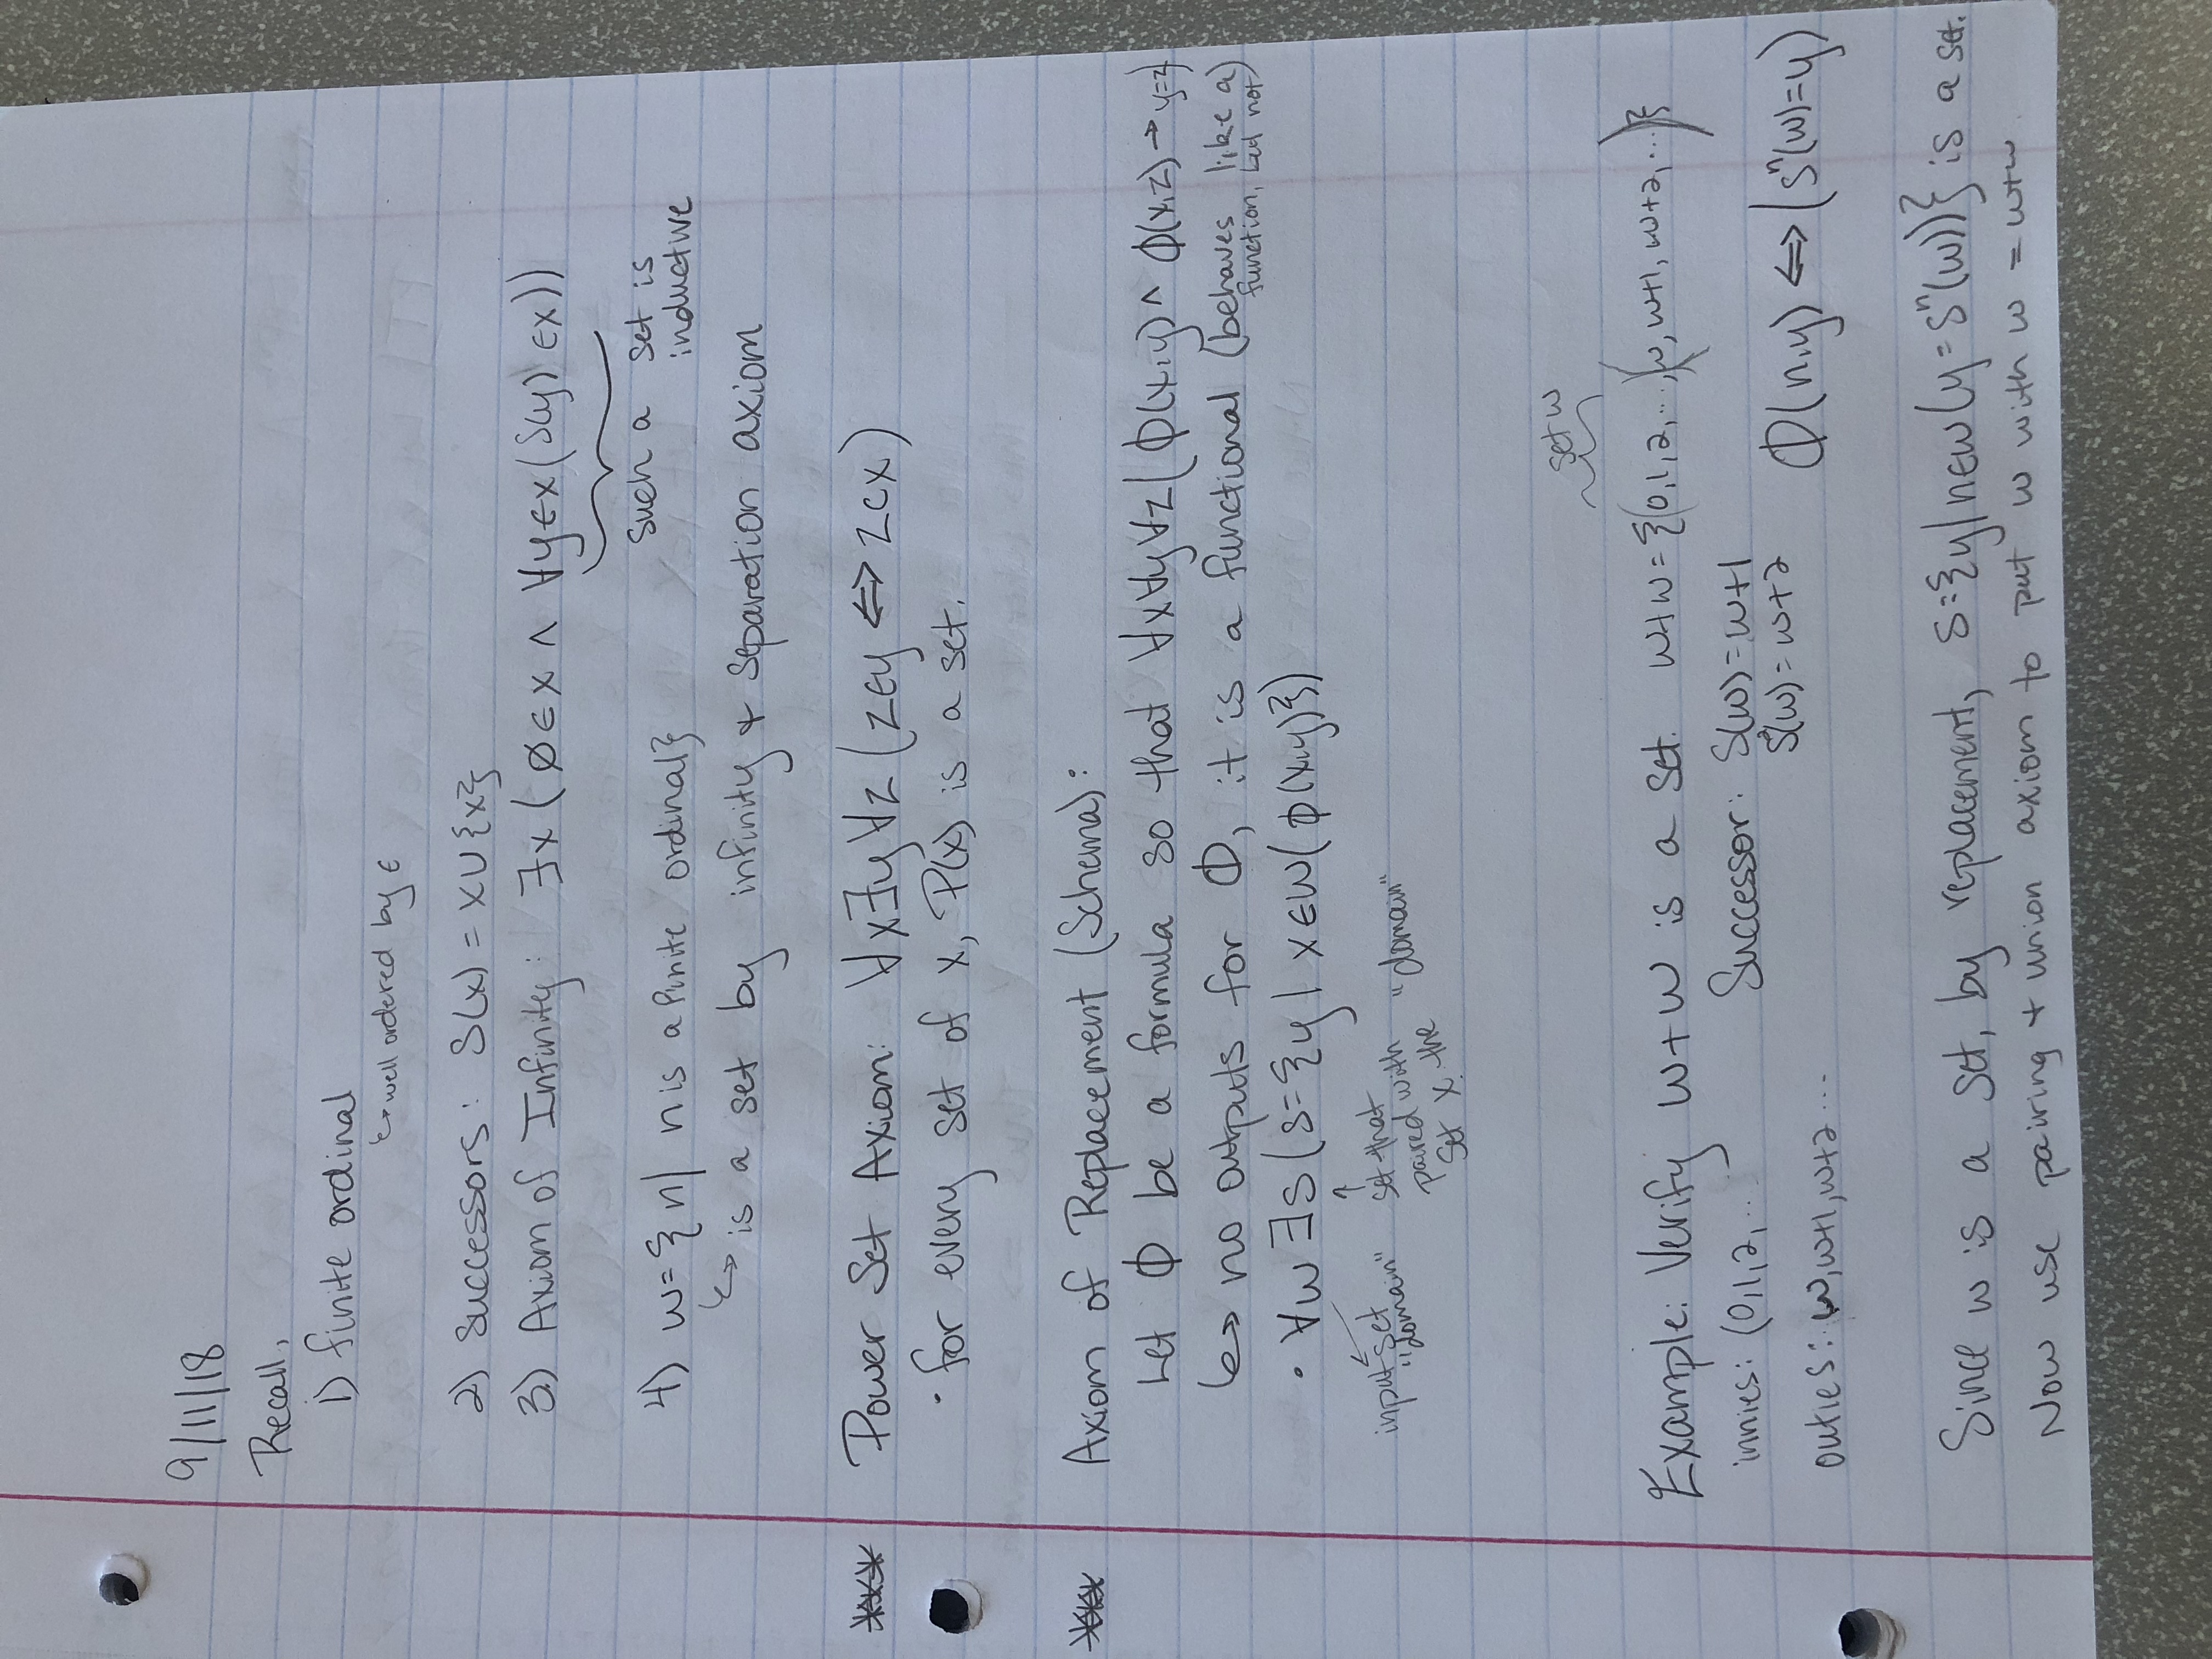 9/11/18
Recall,
1) finite ordinal
↳ well ordered by ∈
2) Successors: S(x) = x∪{x}
3) Axiom of Infinity: ∃x(∅∈x ∧ ∀y∈x(S(y)∈x))
such a set is
inductive
4) ω={n| n is a finite ordinal}
↳ is a set by infinity + separation axiom
*** Power Set Axiom: ∀x∃y∀z(z∈y ⇔ z⊂x)
· for every set of x, P(x) is a set.
*** Axiom of Replacement (Schema):
Let Φ be a formula so that ∀x∀y∀z(Φ(x,y)∧ Φ(x,z)→y=z)
↳ no outputs for Φ, it is a functional (behaves like a
function, but not)
· ∀w∃s(s={y| x∈w(Φ(x,y)})
input set
"domain"
set that
paired with
set x the "domain"
set ω
Example: Verify ω+ω is a set. ω+ω={(0,1,2,...,)(ω,ω+1,ω+2,...)}
innies: (0,1,2,...
Successor: S(ω)=ω+1
S²(ω)=ω+2
Φ(n,y)⇔(Sⁿ(ω)=y)
outies: ω,ω+1,ω+2...
Since ω is a set, by replacement, S={y|n∈ω(y=Sⁿ(ω))} is a set.
Now use pairing + union axiom to put ω with ω = ω+ω.